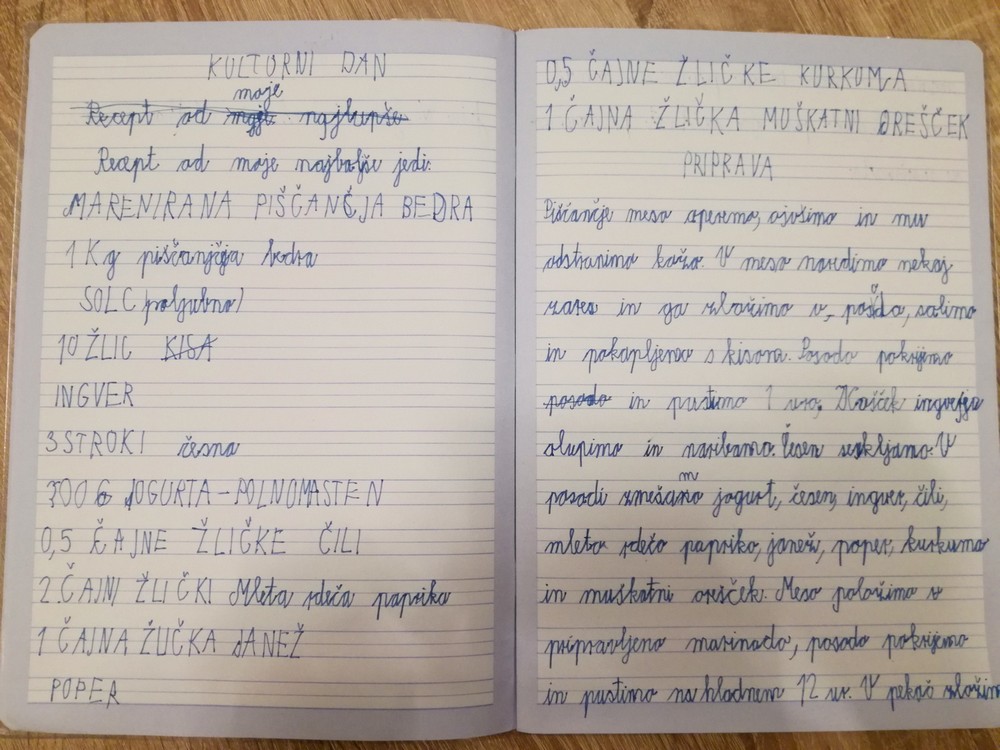 KULTORNI DAN
moje
Recept od moje najlupše
Recept od moje najbalše jedi.
MARENIRANA PIŠČANČJA BEDRA
1 Kg piščančja bedra
SOLC (poljubno)
10 ŽLIC KISA
INGVER
3 STROKI česna
700 G JOGURTA - POLNOMASTEN
0,5 ČAJNE ŽLIČKE ČILI
2 ČAJNI ŽLIČKI Mleta rdeča paprika
1 ČAJNA ŽLIČKA JANEŽ
POPER
0,5 ČAJNE ŽLIČKE KURKUMA
1 ČAJNA ŽLIČKA MUŠKATNI OREŠČEK
PRIPRAVA
Piščančje meso operemo, osušimo in mu
odstranimo kožo. V meso naredimo nekaj
zarez in ga zložimo v, solimo
in pokapljemo s kisom. Posodo pokrijemo
posodo in pustimo 1 uro, Košček ingverja
olupimo in naribamo. Česen sesekljamo. V
m
posodi zmešano jogurt, česen, ingver, čili,
mleto rdečo papriko, janež, poper, kurkumo
in muškatni orešček. Meso položimo v
pripravljeno marinado, posodo pokrijemo
in pustimo na hladnem 12 ur. V pekač zložim